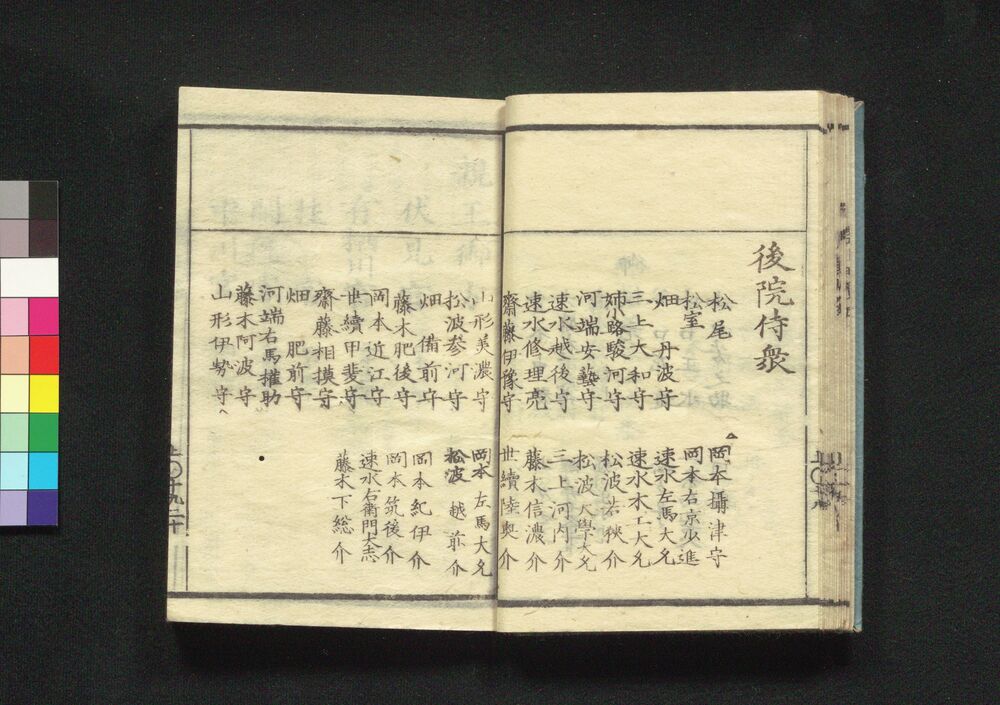 後院侍衆
松尾
松室
畑 丹波守
三上大和守
姉小路駿河守
河端安藝守
速水越後守
速水修理亮
齋藤伊豫守
岡本攝津守
岡本右京少進
速水左馬大允
速水木工大允
松波若狹介
松波大學大允
三上河内介
藤木信濃介
世續陸奥介
山形美濃守
松波参河守
畑 備前守
藤木肥後守
岡本近江守
世續甲斐守
齋藤相摸守
畑 肥前守
河端右馬權助
藤木阿波守
山形伊勢守
岡本左馬大允
松波越前介
岡本紀伊介
岡本筑後介
速水右衛門大志
藤木下総介
上〇十九二十